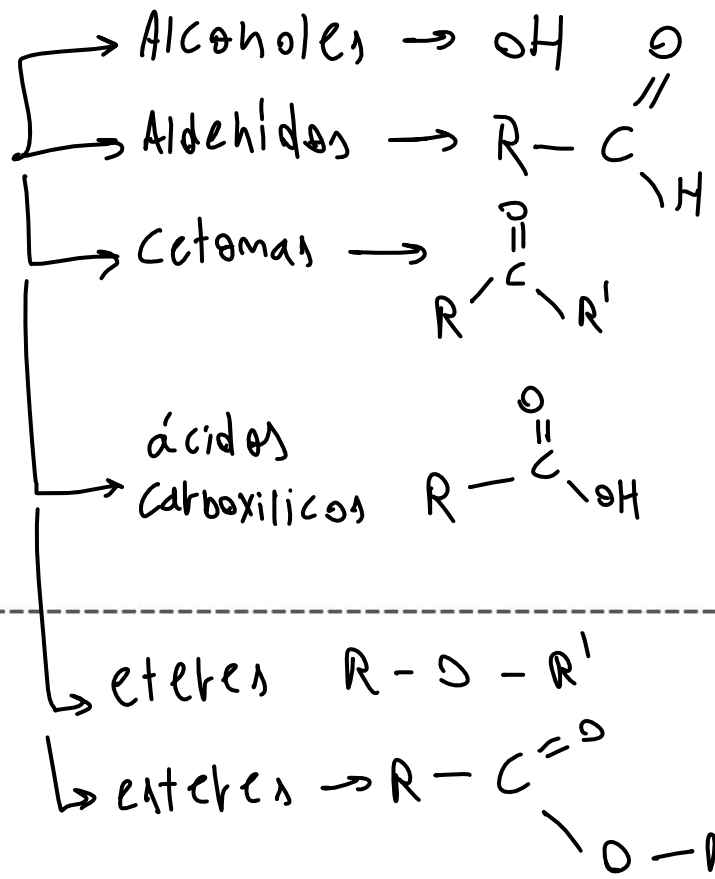 Alcoholes → OH
O
Aldehídos → R — C
H
Cetonas →
O
C
R R'
ácidos
carboxilicos
O
R — C
OH
eteres R - O - R'
esteres → R — C = O
O —